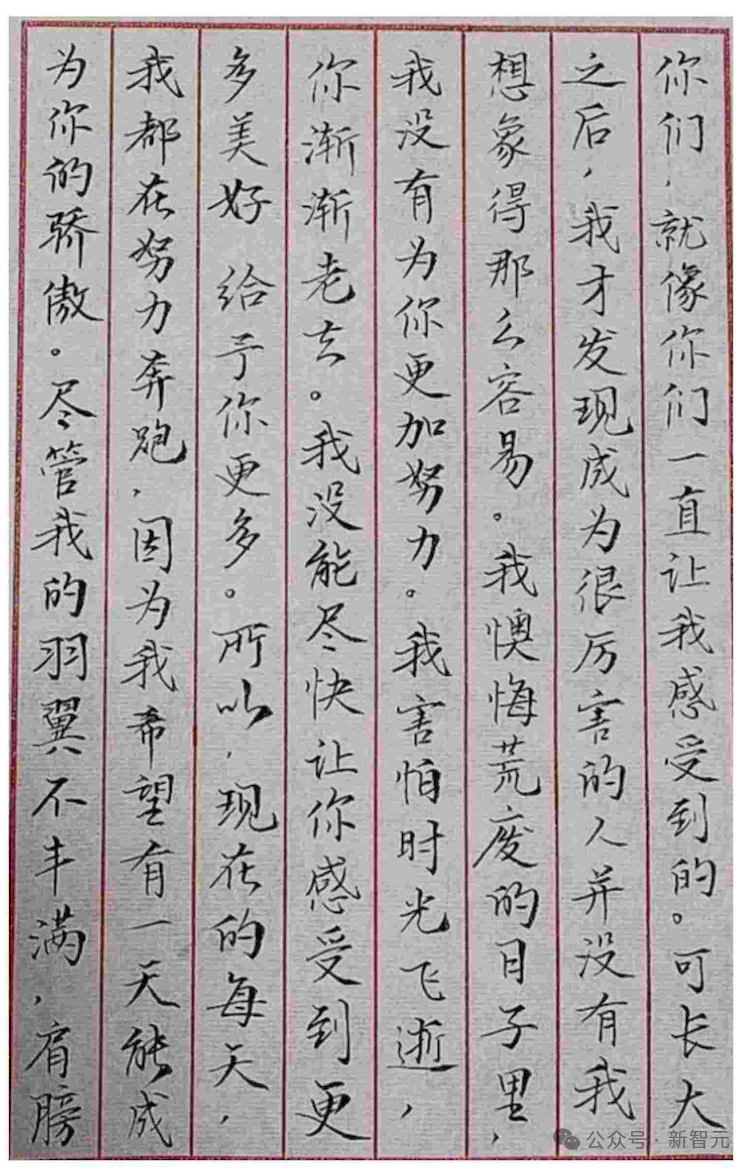 你们，就像你们一直让我感受到的。可长大
之后，我才发现成为很厉害的人并没有我
想象得那么容易。我懊悔荒废的日子里，
我没有为你更加努力。我害怕时光飞逝，
你渐渐老去。我没能尽快让你感受到更
多美好 给予你更多。所以，现在的每天，
我都在努力奔跑，因为我希望有一天能成
为你的骄傲。尽管我的羽翼不丰满，肩膀
公众号·新智元